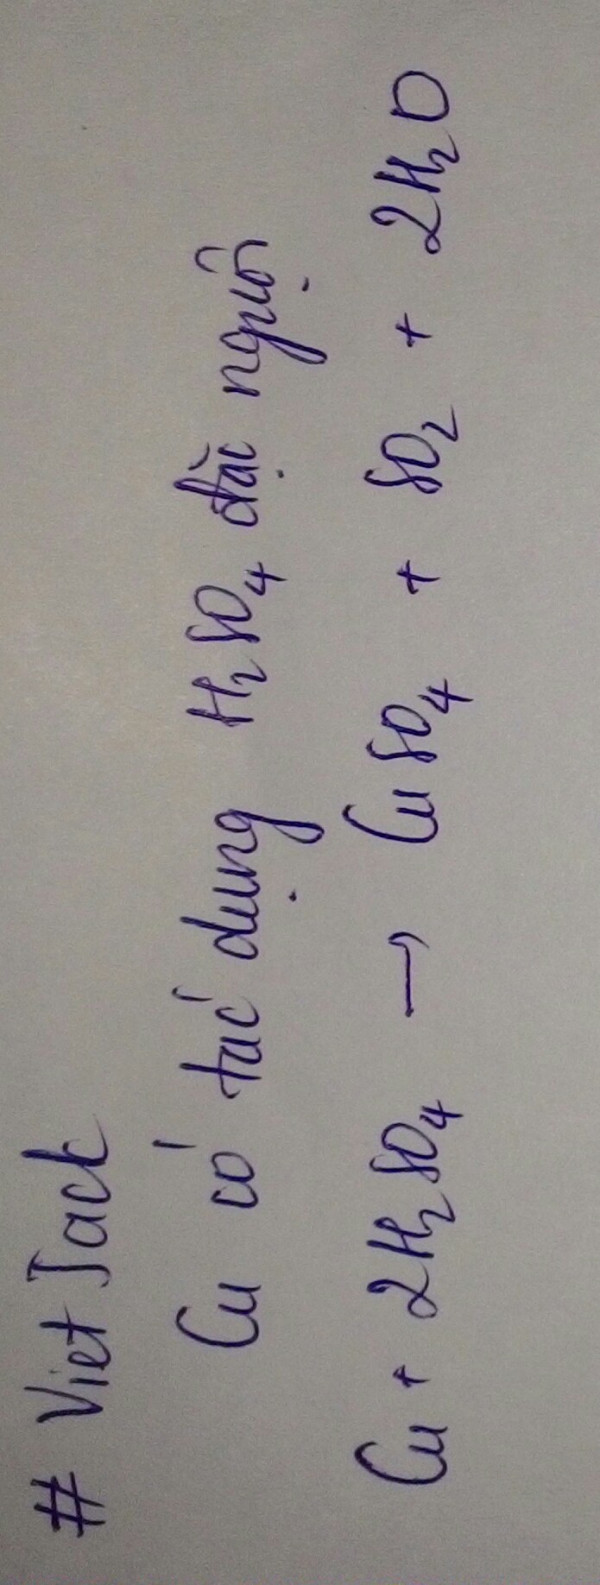 # Viet Jack
Cu có tác dụng H₂SO₄ đặc nguội
Cu + 2H₂SO₄ → CuSO₄ + SO₂ + 2H₂O